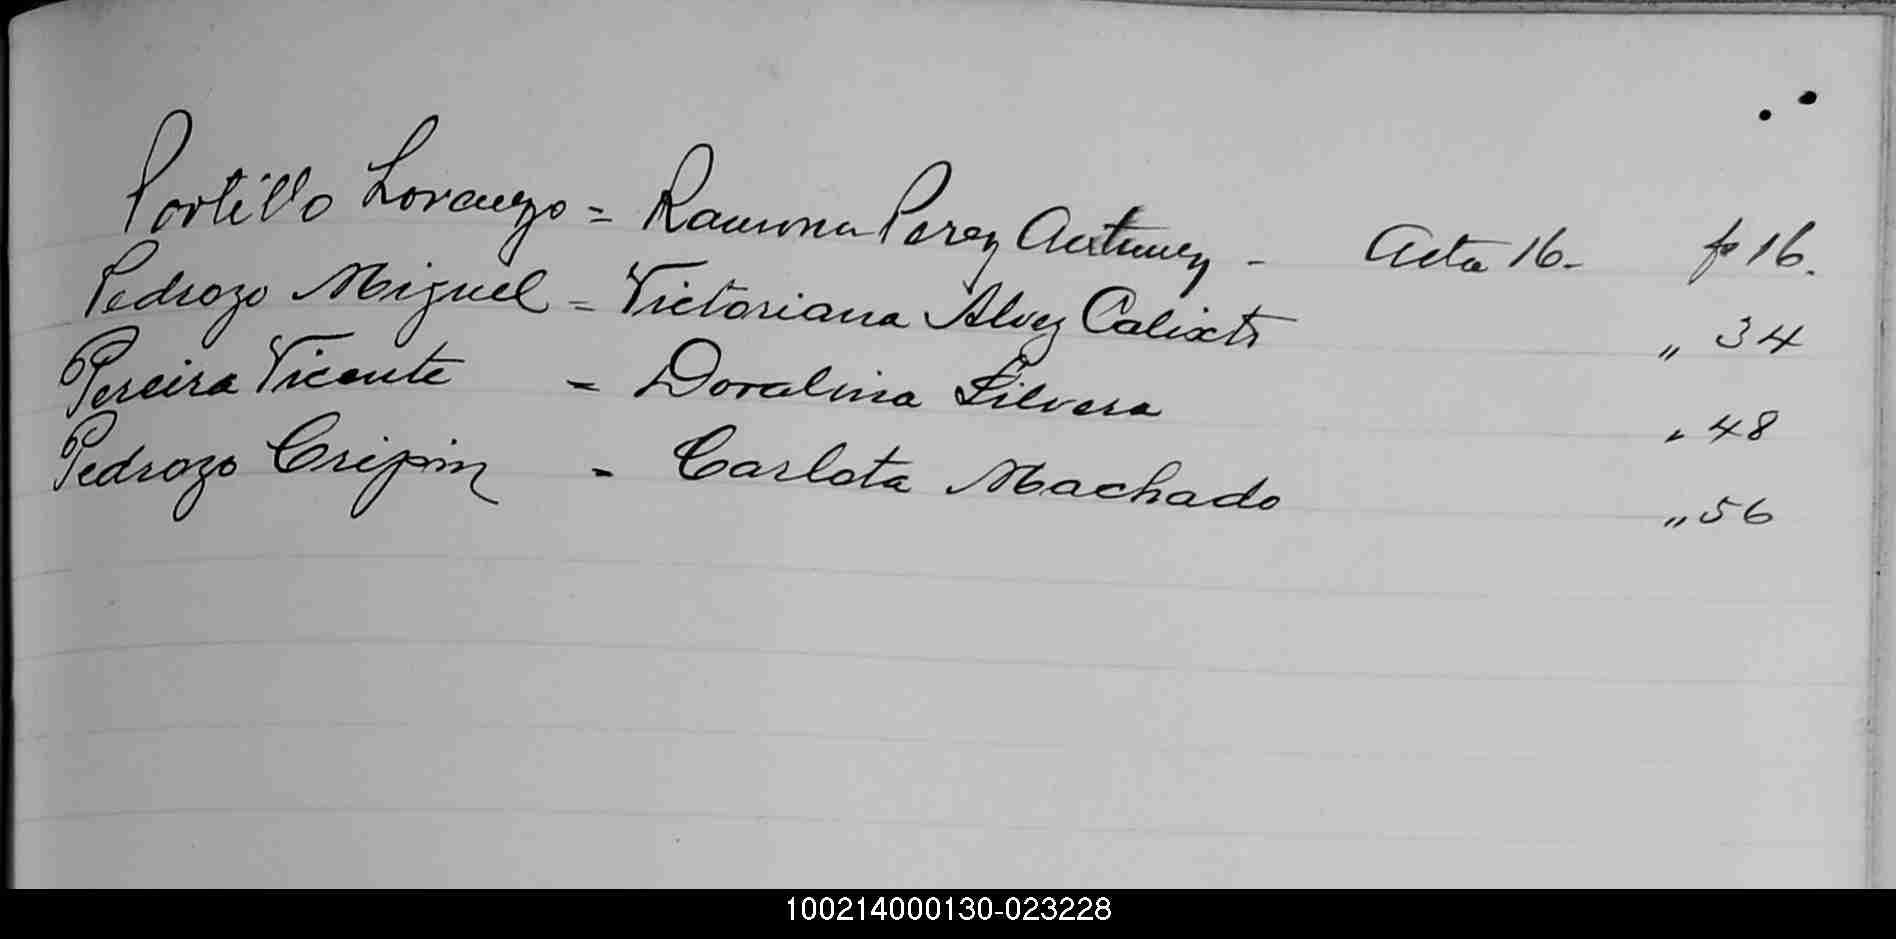 Portillo Lorenzo = Ramona Perez Antunez - Acta 16. fo 16.
Pedrozo Miguel = Victoriana Alvez Calixto " 34
Pereira Vicente = Doralina Silvera " 48
Pedrozo Cripin - Carlota Machado " 56
100214000130-023228